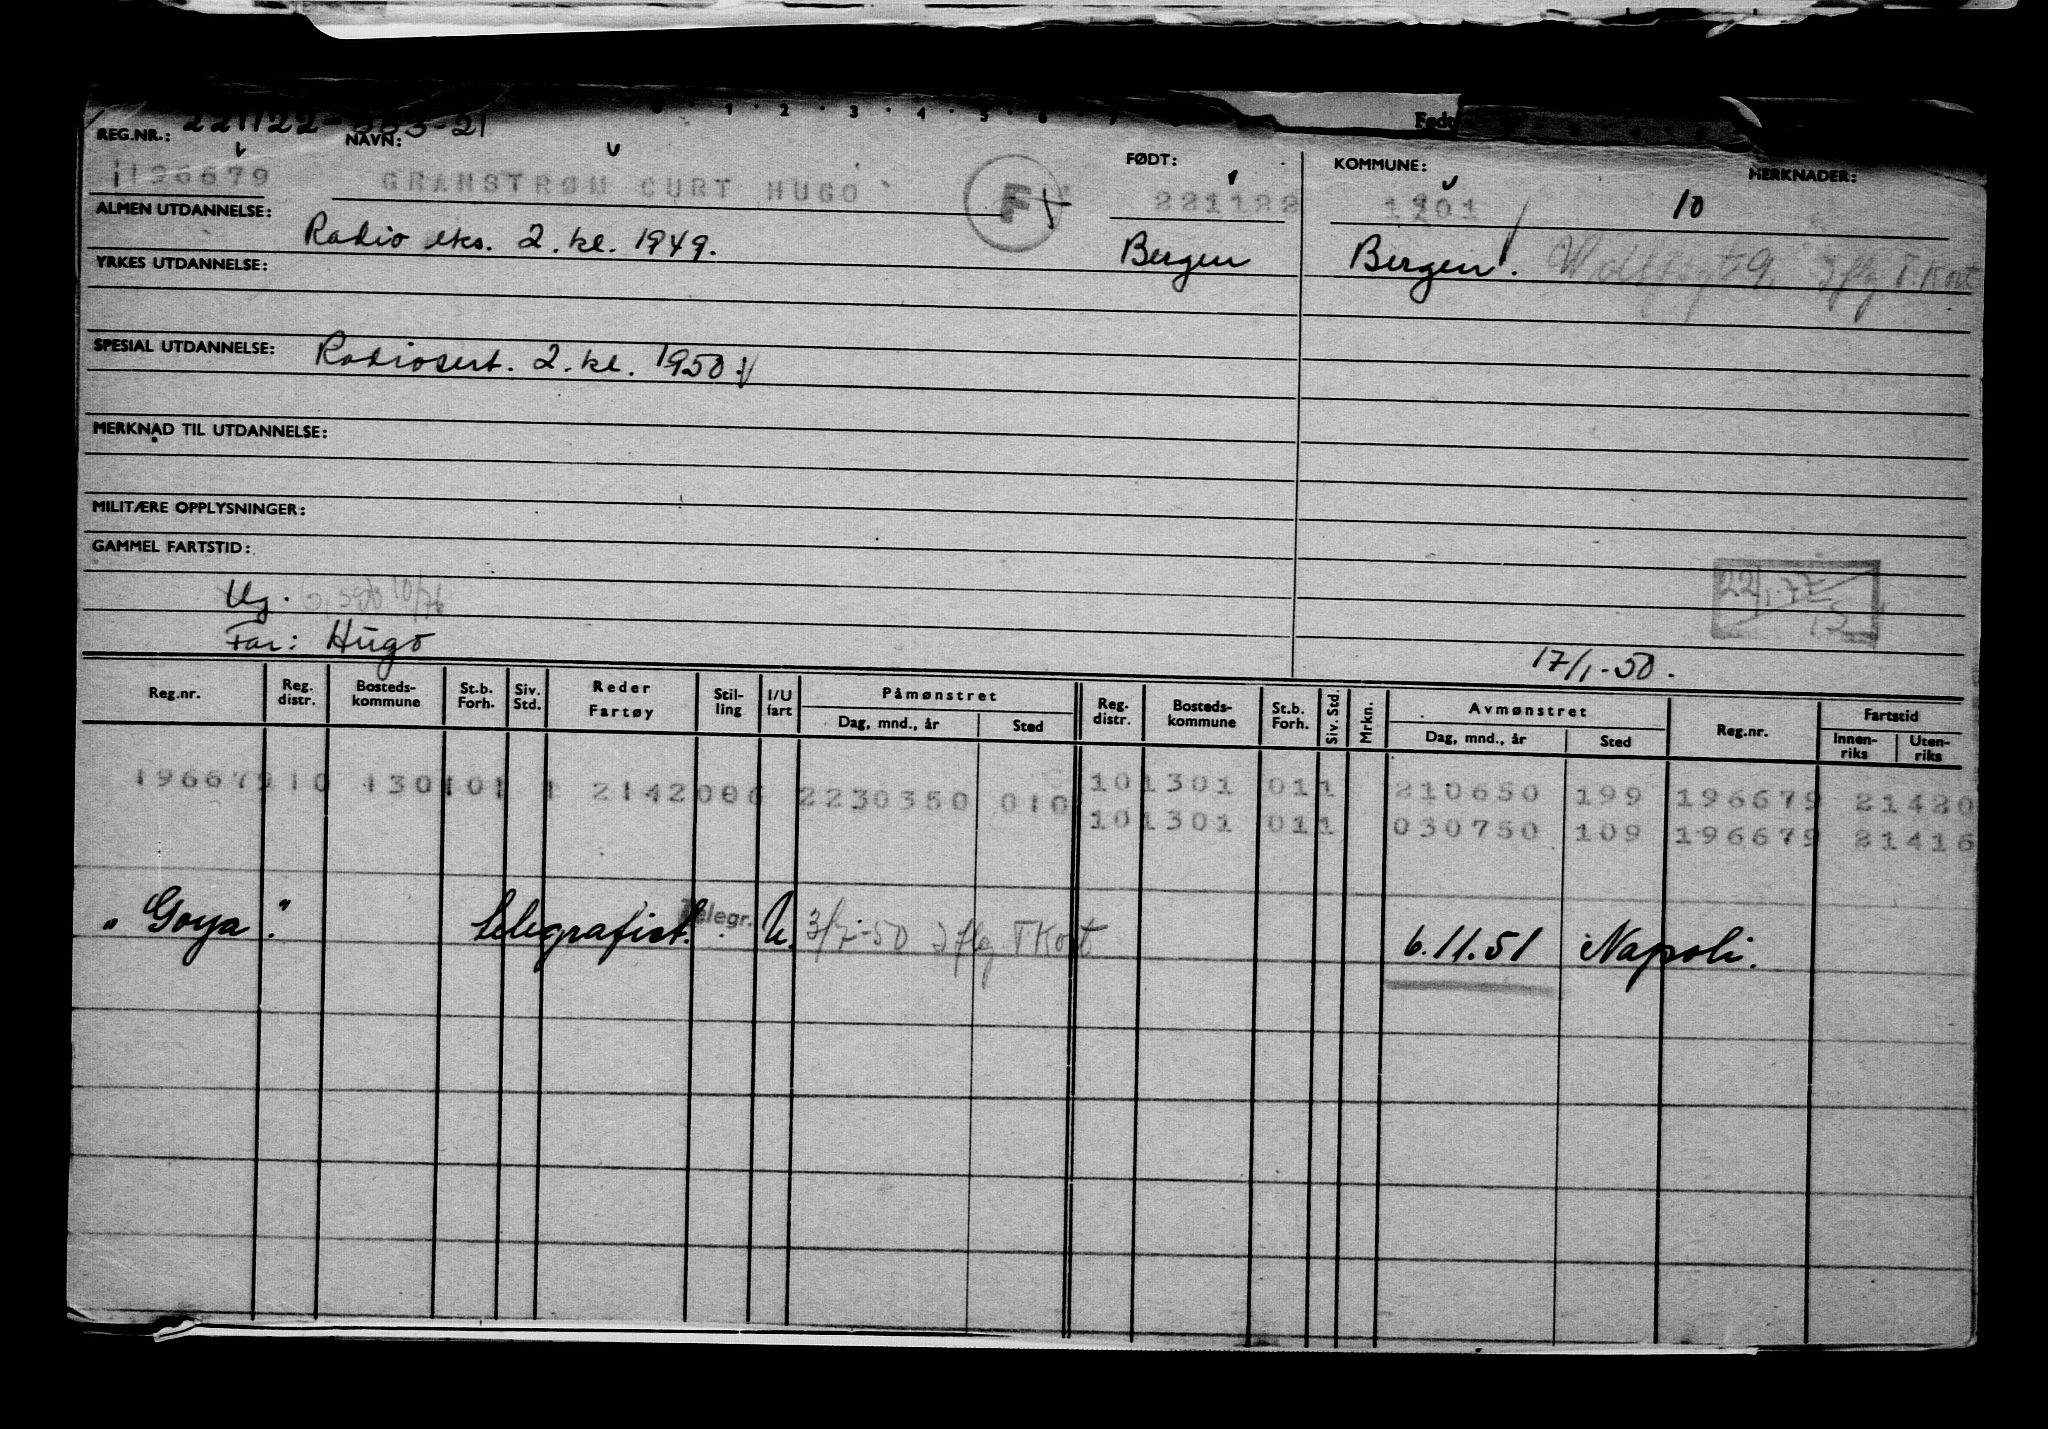 0 · 1 · 2 · 3 · 4 · 5 · 6 · 7
221122-553-21
REG.NR.: NAVN: FØDT: KOMMUNE: MERKNADER:
1196679 GRANSTRØM CURT HUGO F 221122 1301 10
ALMEN UTDANNELSE: Radio eks. 2. kl. 1949. Bergen Bergen. Iflg T. Kort
YRKES UTDANNELSE:
SPESIAL UTDANNELSE: Radiosert. 2. kl. 1950.
MERKNAD TIL UTDANNELSE:
MILITÆRE OPPLYSNINGER:
GAMMEL FARTSTID:
Ug. 10/76
Far: Hugo
17/1-50.
Reg.nr. Reg. distr. Bosteds-kommune St.b. Forh. Siv. Std. Reder Fartøy Stil-ling I/U fart Påmønstret Dag, mnd., år Sted Reg. distr. Bosteds-kommune St.b. Forh. Siv. Std. Mrkn. Avmønstret Dag, mnd., år Sted Reg.nr. Fartstid Innen-riks Uten-riks
196679 10 1301 01 1 2142006 2230350 010 10 1301 01 1 210650 199 196679 21420
10 1301 01 1 030750 109 196679 21416
"Goya". telegrafist. Telegr. U. 3/7-50 Iflg T Kort 6.11.51 Napoli.